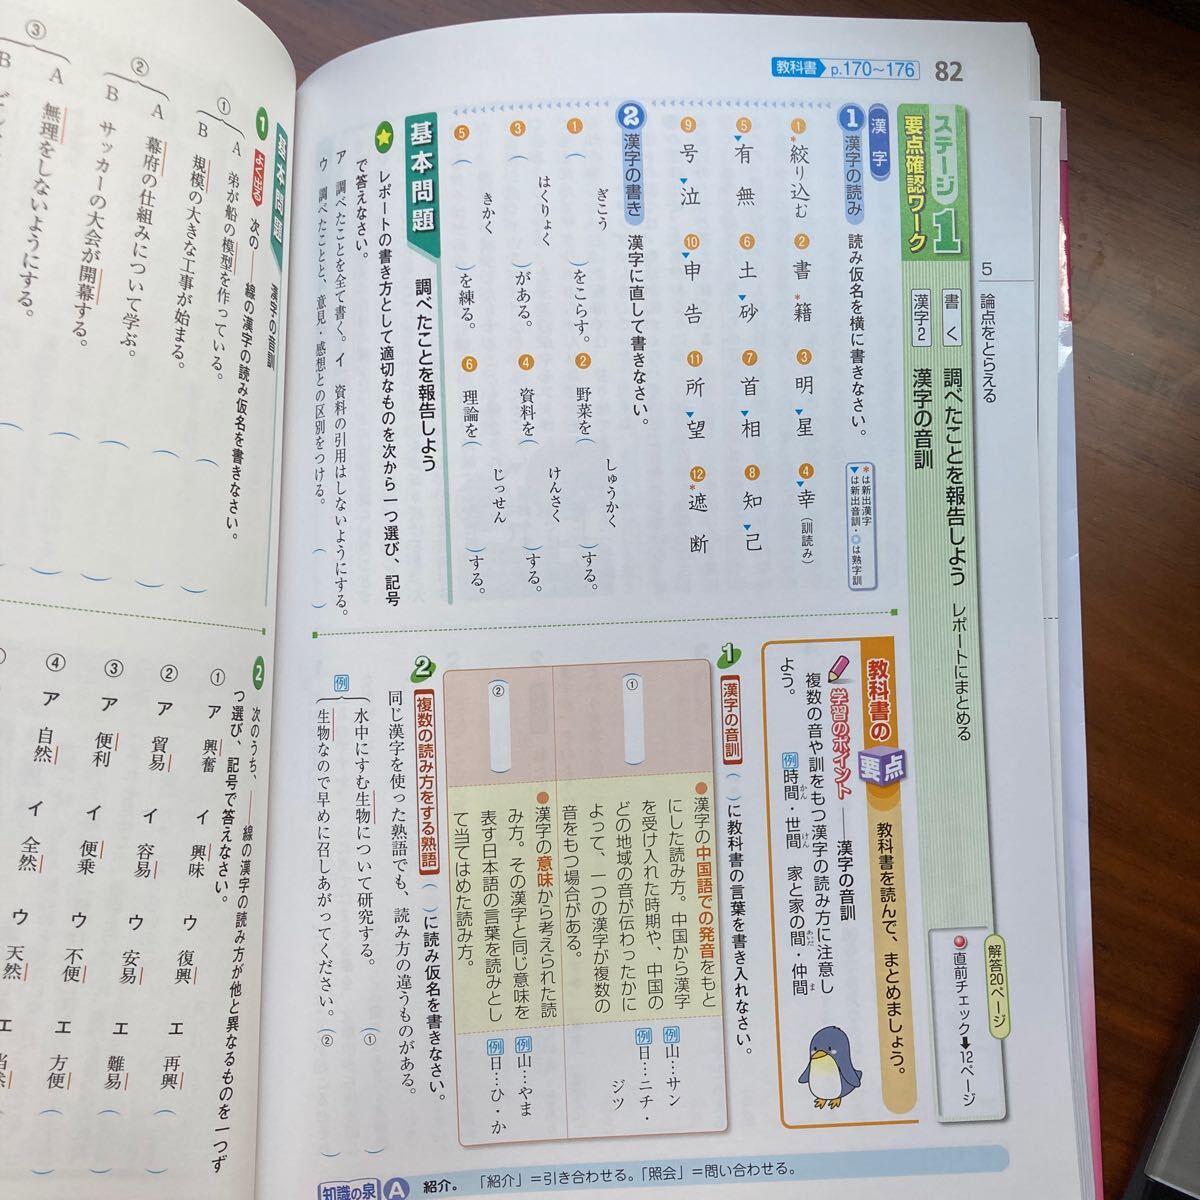 教科書 p.170～176
82
5 論点をとらえる
ステージ1
要点確認ワーク
書く 調べたことを報告しよう レポートにまとめる
漢字2 漢字の音訓
解答20ページ
直前チェック➡12ページ
漢字
1 漢字の読み 読み仮名を横に書きなさい。
*は新出漢字
▼は新出音訓・◎は熟字訓
❶*絞り込む ❷書*籍 ❸明▼星 ❹▼幸(訓読み)
❺▼有無 ❻土▼砂 ❼首▼相 ❽知▼己
❾号▼泣 ❿▼申告 ⓫所▼望 ⓬*遮断
2 漢字の書き 漢字に直して書きなさい。
❶( ぎこう )をこらす。 ❷野菜を( しゅうかく )する。
❸( はくりょく )がある。 ❹資料を( けんさく )する。
❺( きかく )を練る。 ❻理論を( じっせん )する。
基本問題 調べたことを報告しよう
★ レポートの書き方として適切なものを次から一つ選び、記号
で答えなさい。
ア 調べたことを全て書く。 イ 資料の引用はしないようにする。
ウ 調べたことと、意見・感想との区別をつける。 ( )
教科書の要点 教科書を読んで、まとめましょう。
学習のポイント――漢字の音訓
複数の音や訓をもつ漢字の読み方に注意し
よう。 例 時間(かん)・世間(けん) 家と家の間(あいだ)・仲間(ま)
1 漢字の音訓 ( )に教科書の言葉を書き入れなさい。
①
●漢字の中国語での発音をもと
にした読み方。中国から漢字
を受け入れた時期や、中国の
どの地域の音が伝わったかに
よって、一つの漢字が複数の
音をもつ場合がある。
例 山…サン
例 日…ニチ・
ジツ
②
●漢字の意味から考えられた読
み方。その漢字と同じ意味を
表す日本語の言葉を読みとし
て当てはめた読み方。
例 山…やま
例 日…ひ・か
2 複数の読み方をする熟語 ( )に読み仮名を書きなさい。
同じ漢字を使った熟語でも、読み方の違うものがある。
例 水中にすむ生物について研究する。 ①( )
生物なので早めに召しあがってください。 ②( )
知識の泉 A 紹介。 「紹介」＝引き合わせる。「照会」＝問い合わせる。
基本問題 漢字の音訓
1 よく出る 次の――線の漢字の読み仮名を書きなさい。
① A 弟が船の模型を作っている。 ( )
B 規模の大きな工事が始まる。 ( )
② A 幕府の仕組みについて学ぶ。 ( )
B サッカーの大会が開幕する。 ( )
③ A 無理をしないようにする。 ( )
B
2 次のうち、――線の漢字の読み方が他と異なるものを一つず
つ選び、記号で答えなさい。
① ア 興奮 イ 興味 ウ 復興 エ 再興 ( )
② ア 貿易 イ 容易 ウ 安易 エ 難易 ( )
③ ア 便利 イ 便乗 ウ 不便 エ 方便 ( )
④ ア 自然 イ 全然 ウ 天然 エ 当然